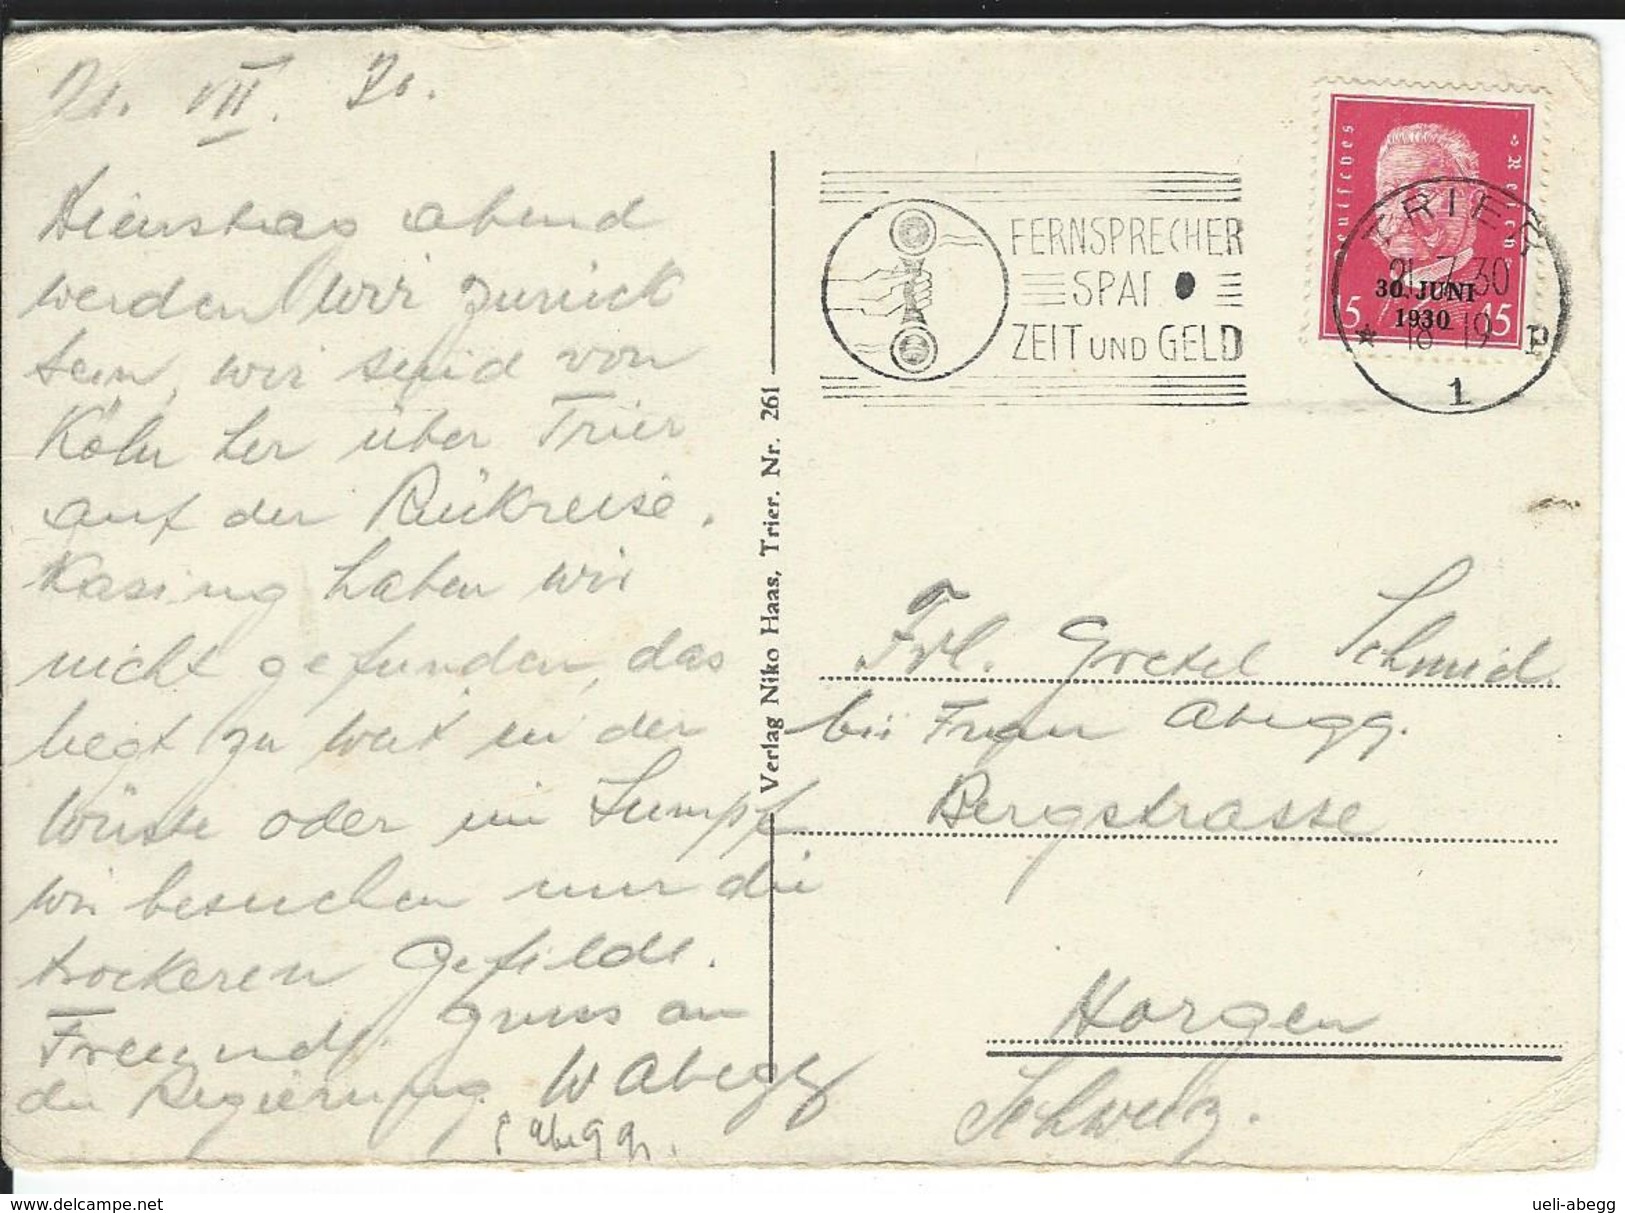 21. VII. 30.
Dienstag abend
werden wir zurück
sein, wir sind von
Köln her über Trier
auf der Rückreise.
Kasing haben wir
nicht gefunden, das
liegt zu weit in der
Wüste oder im Sumpf
wir besuchen nur die
trockeren Gefilde.
Freundl. Gruss an
die Regierung W Abegg
Abegg.
Verlag Niko Haas, Trier. Nr. 261
FERNSPRECHER
SPAR
ZEIT UND GELD
Deutsches Reich
30. JUNI
1930
15 15
TRIER
21.7.30
18-19
1
Frl. Gretel Schmid
bei Frau Abegg.
Bergstrasse
Horgen
Schweiz.
ueli-abegg